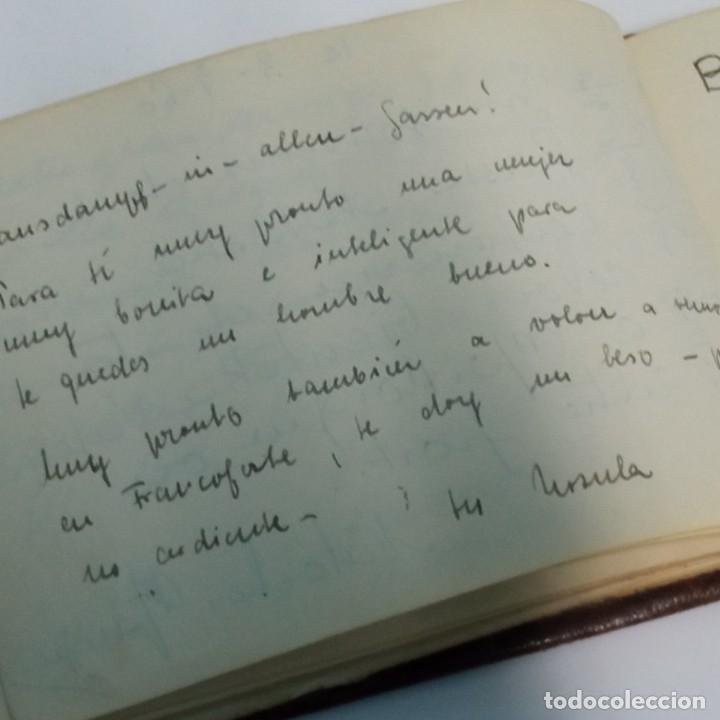 ansdampf - in - allen - Gassen!
Para ti muy pronto una mujer
muy bonita e inteligente para
te quedes un hombre bueno.
Muy pronto también a volver a
en Francoforte, te doy un beso -
no ardiente - ! tu Ursula
B
todocoleccion